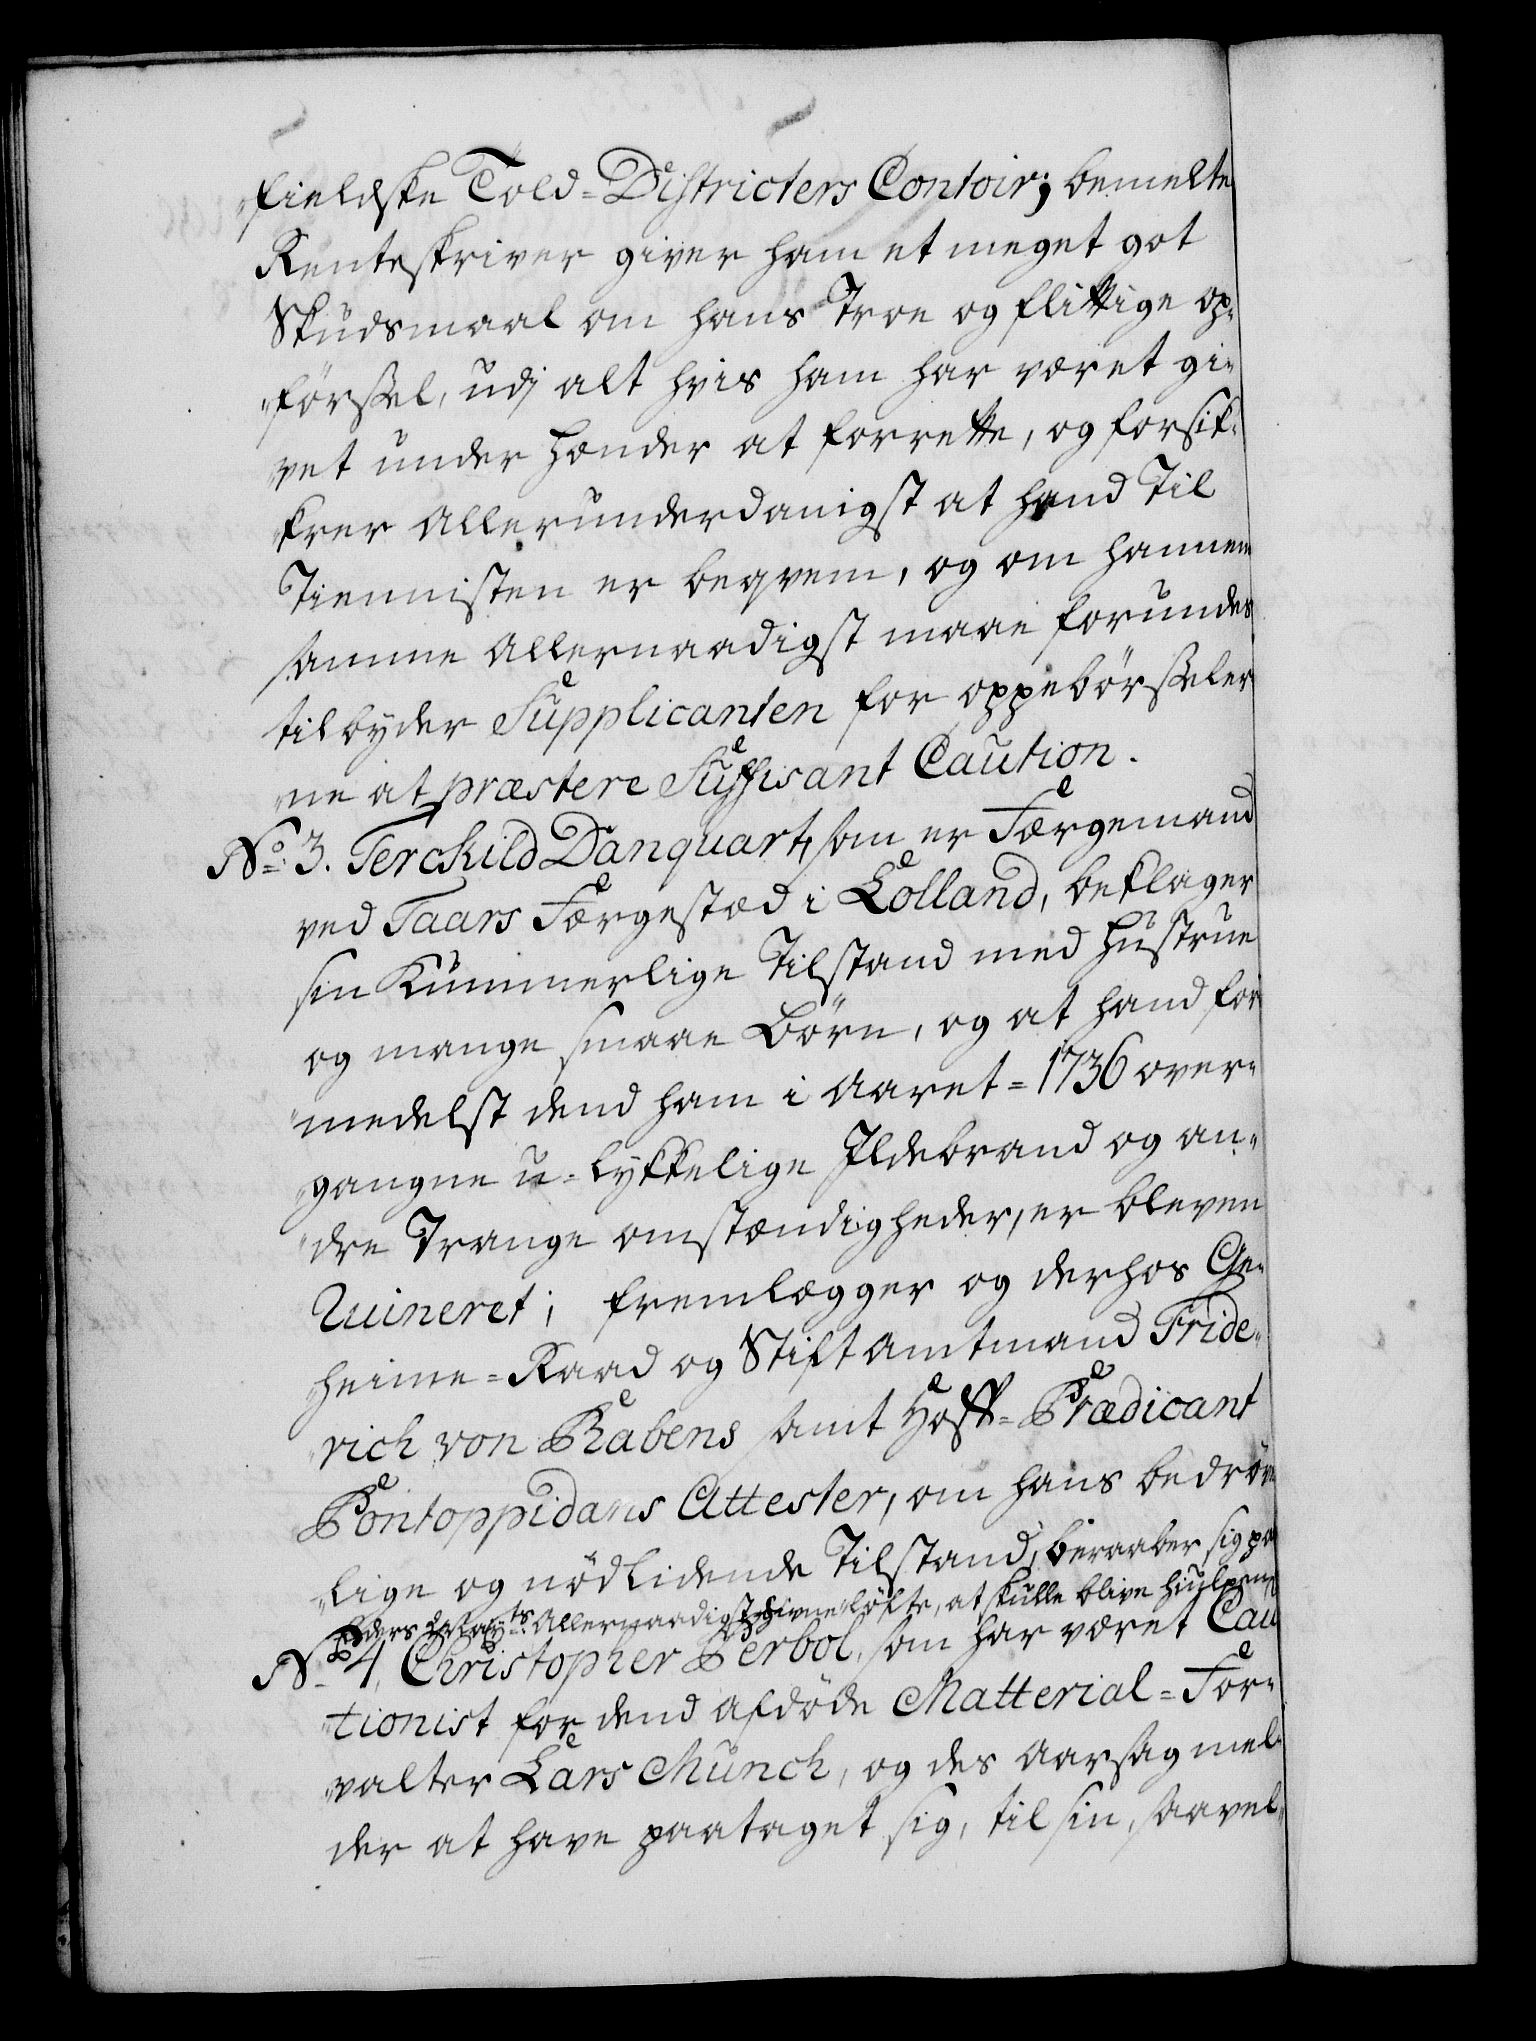 „fieldske Told=Districters Contoir; bemelte
Renteskriver giver ham et meget got
Skudsmaal om hans Troe og flittige op„
„førssel, udj alt hvis ham har været gi„
vet under Hænder at forrette, og forsik„
krer Allerunderdanigst at hand Til
Tiennisten er beqvem, og om hannem
samme Allernaadigst maae forundes
tilbyder Supplicanten for oppebørsseler
„ne at præstere Suffisant Caution.
No: 3. Terckild Danquart, som er Færgemand
ved Taars Færgestæd i Lolland, beklager
sin Kummerlige Tilstand med Hustrue
og mange smaae Børn, og at hand for
„medelst dend ham i Aaret=1736 over„
„gangne u=lykkelige Ildebrand og an„
„dre Trange omstændigheder, er bleven
Ruineret; fremlægger og derhos Ge„
„heime=Raad og Stiftamtmand Fride„
„rich von Rabens samt Hoff=Prædicant
Pontoppidans Attester, om hans bedrøve
„lige og nødlidende Tilstand, beraaber sig paa
Eders Mayts: Allernaadigst givne løfte, at skulle blive hiulpen
No 4. Christopher Perbol, som har været Cau
„tionist for dend afdøde Matterial=For„
„valter Lars Munch, og des Aarsag mel„
der at have paataget sig, til sin, saavel„